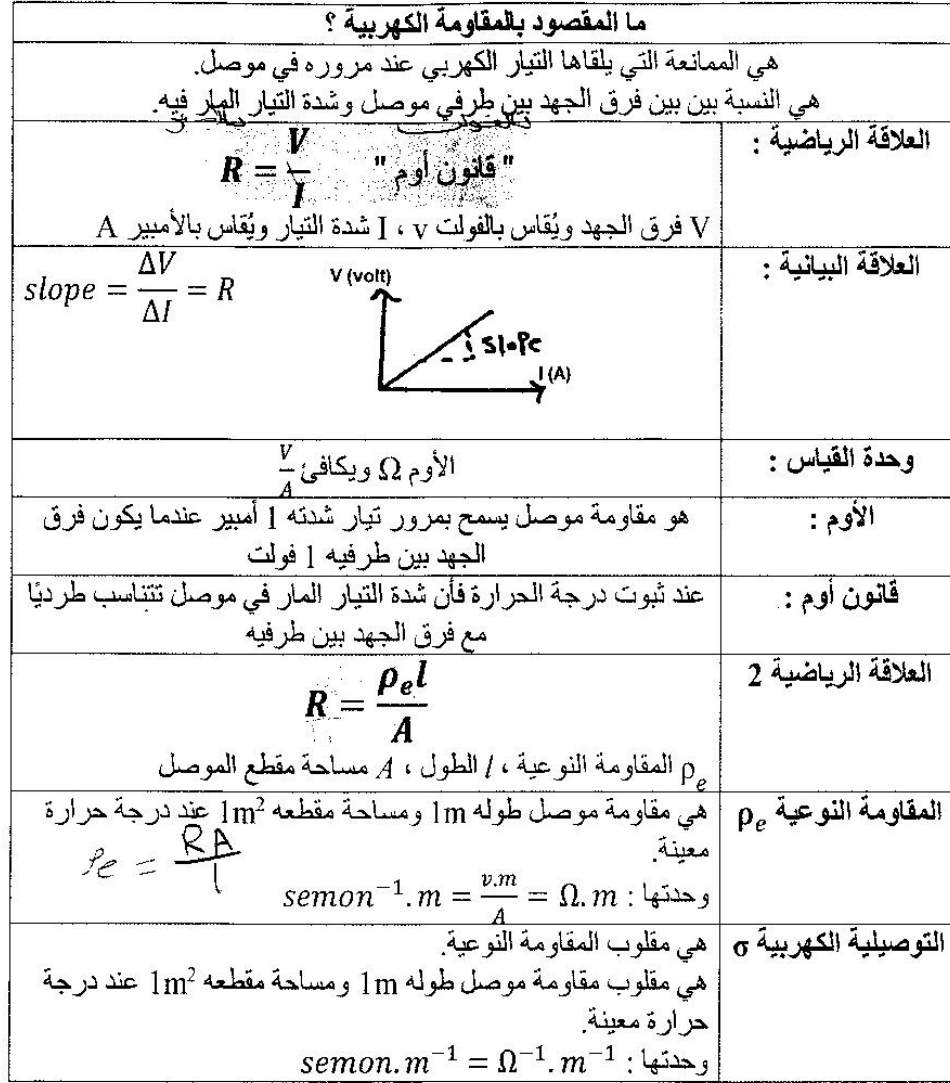 ما المقصود بالمقاومة الكهربية ؟
هي الممانعة التي يلقاها التيار الكهربي عند مروره في موصل.
هي النسبة بين بين فرق الجهد بين طرفي موصل وشدة التيار المار فيه.
العلاقة الرياضية :
" قانون أوم " R = V/I
V فرق الجهد ويُقاس بالفولت v ، I شدة التيار ويُقاس بالأمبير A
العلاقة البيانية :
slope = ΔV/ΔI = R
V (volt)
slope
I (A)
وحدة القياس :
الأوم Ω ويكافئ V/A
الأوم :
هو مقاومة موصل يسمح بمرور تيار شدته 1 أمبير عندما يكون فرق
الجهد بين طرفيه 1 فولت
قانون أوم :
عند ثبوت درجة الحرارة فأن شدة التيار المار في موصل تتناسب طرديًا
مع فرق الجهد بين طرفيه
العلاقة الرياضية 2
R = ρₑl/A
ρₑ المقاومة النوعية ، l الطول ، A مساحة مقطع الموصل
المقاومة النوعية ρₑ
هي مقاومة موصل طوله 1m ومساحة مقطعه 1m² عند درجة حرارة
معينة.
ρe = RA/l
وحدتها : semon⁻¹.m = v.m/A = Ω.m
التوصيلية الكهربية σ
هي مقلوب المقاومة النوعية.
هي مقلوب مقاومة موصل طوله 1m ومساحة مقطعه 1m² عند درجة
حرارة معينة.
وحدتها : semon.m⁻¹ = Ω⁻¹.m⁻¹